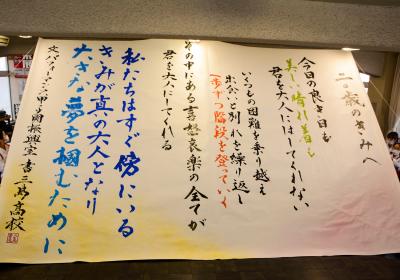 二十歳のきみへ
今日の良き日も
美しい晴れ着も
君を大人にはしてくれない
いくつもの困難を乗り越え
出会いと別れを繰り返し
一歩ずつ階段を登っていく
その中にある喜怒哀楽の全てが
君を大人にしてくれる
私たちはすぐ傍にいる
きみが真の大人となり
大きな夢を掴むために